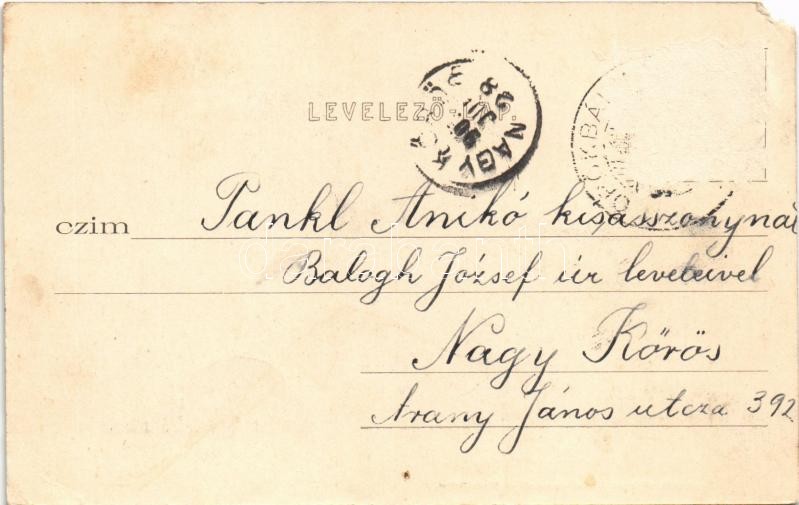 LEVELEZŐ-LAP.
NAGY KŐRÖS
czim Pankl Anikó kisasszonynak
Balogh József úr leveleivel
Nagy Kőrös
Arany János utcza 392